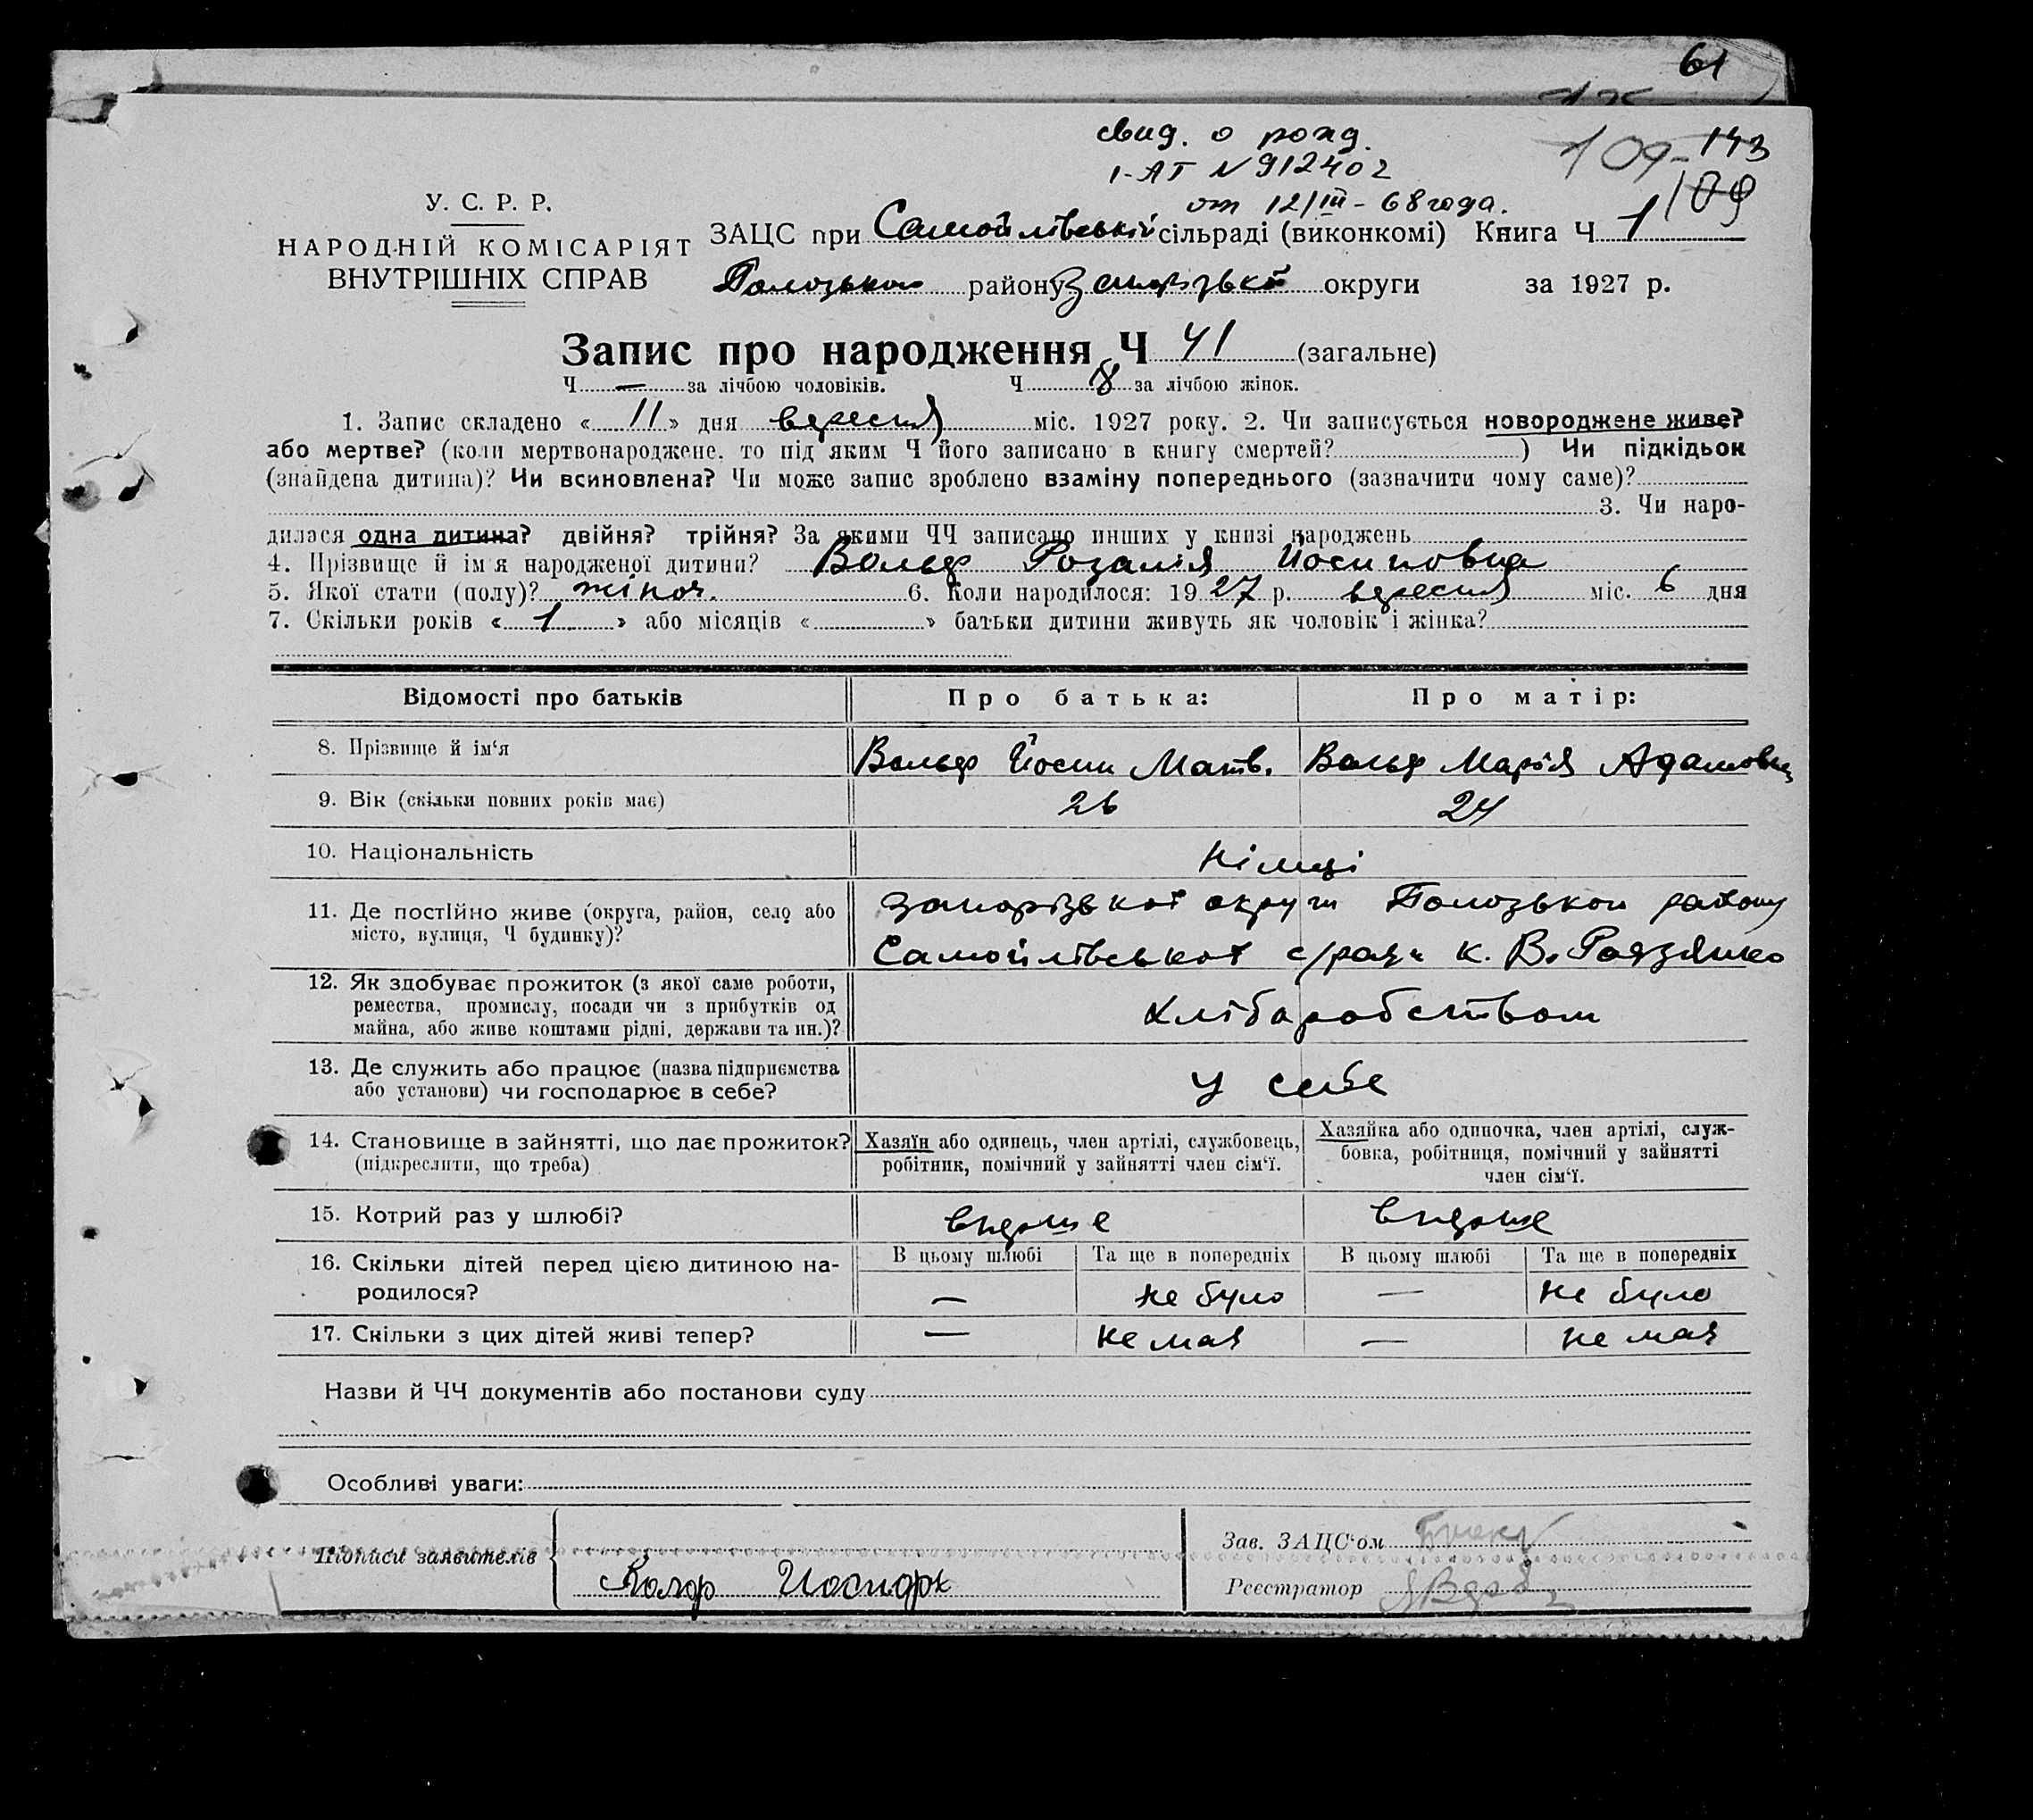 61
свид. о рожд.
1-АТ N 912402
от 12/III - 68 года.
109- 143
109
У. С. Р. Р.
НАРОДНІЙ КОМІСАРІЯТ
ВНУТРІШНІХ СПРАВ
ЗАЦС при Самойлівській сільраді (виконкомі) Книга Ч 1
Пологського району Запорізької округи за 1927 р.
Запис про народження Ч 41 (загальне)
Ч — за лічбою чоловіків. Ч 18 за лічбою жінок.
1. Запис складено « 11 » дня вересня міс. 1927 року. 2. Чи записується новороджене живе?
або мертве? (коли мертвонароджене, то під яким Ч його записано в книгу смертей? ) Чи підкідьок
(знайдена дитина)? Чи всиновлена? Чи може запис зроблено взаміну попереднього (зазначити чому саме)?
3. Чи наро-
дилася одна дитина? двійня? трійня? За якими ЧЧ записано инших у книзі народжень
4. Прізвище й ім'я народженої дитини? Вольф Розалія Йосиповна
5. Якої стати (полу)? жіноч. 6. Коли народилося: 1927 р. вересня міс. 6 дня
7. Скільки років « 1 » або місяців « » батьки дитини живуть як чоловік і жінка?
Відомості про батьків Про батька: Про матір:
8. Прізвище й ім'я Вольф Йосип Матв. Вольф Марія Адамовна
9. Вік (скільки повних років має) 26 24
10. Національність німці
11. Де постійно живе (округа, район, село або
місто, вулиця, Ч будинку)?
Запорізької округи Пологського району
Самойлівської с/ради к. В.
12. Як здобуває прожиток (з якої саме роботи,
ремества, промислу, посади чи з прибутків од
майна, або живе коштами рідні, держави та ин.)?
хліборобством
13. Де служить або працює (назва підприємства
або установи) чи господарює в себе?
у себе
14. Становище в зайнятті, що дає прожиток?
(підкреслити, що треба)
Хазяїн або одинець, член артілі, службовець,
робітник, помічний у зайнятті член сім'ї.
Хазяйка або одиночка, член артілі, служ-
бовка, робітниця, помічний у зайнятті
член сім'ї.
15. Котрий раз у шлюбі? вперше вперше
16. Скільки дітей перед цією дитиною на-
родилося?
В цьому шлюбі Та ще в попередніх В цьому шлюбі Та ще в попередніх
— не було — не було
17. Скільки з цих дітей живі тепер? — немая — немая
Назви й ЧЧ документів або постанови суду
Особливі уваги:
Підписи заявителів
Зав. ЗАЦС'ом
Реєстратор